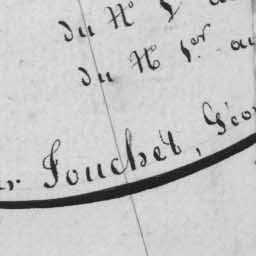 du N°
du N° 1er au
r. Fouchet, Géo